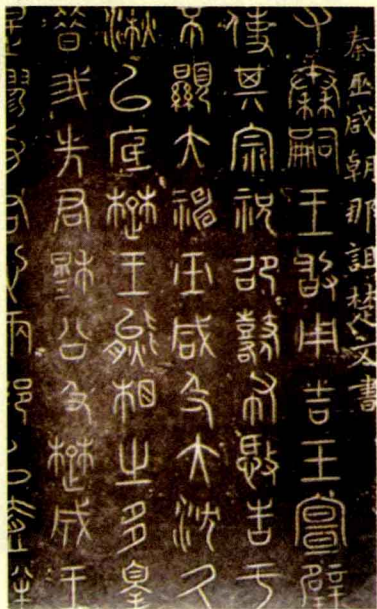 秦巫咸朝那詛楚文書
又秦嗣王敢用吉玉宣璧
使其宗祝邵鼛布憝告于
不顯大神巫咸及大沈久
湫以底楚王熊相之多辠
昔我先君穆公及楚成王
是繆力同心兩邦以壹絆